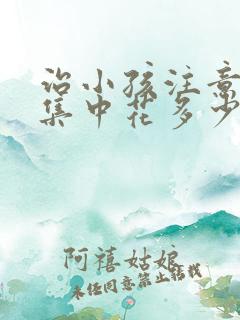 治小孩注意
集中花多少
阿禧姑娘
未经同意禁止转载